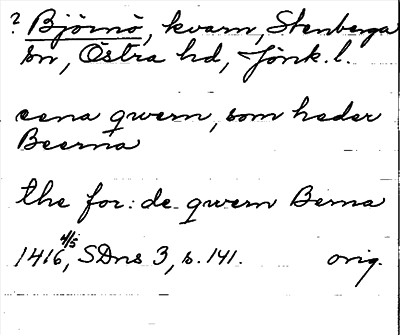 ? Björnö, kvarn, Stenberga
sn, Östra hd, Jönk. l.
eena qwern, som heder
Beerna
the for:de qwern Berna
1416 4/5, SDns 3, s. 141. orig.